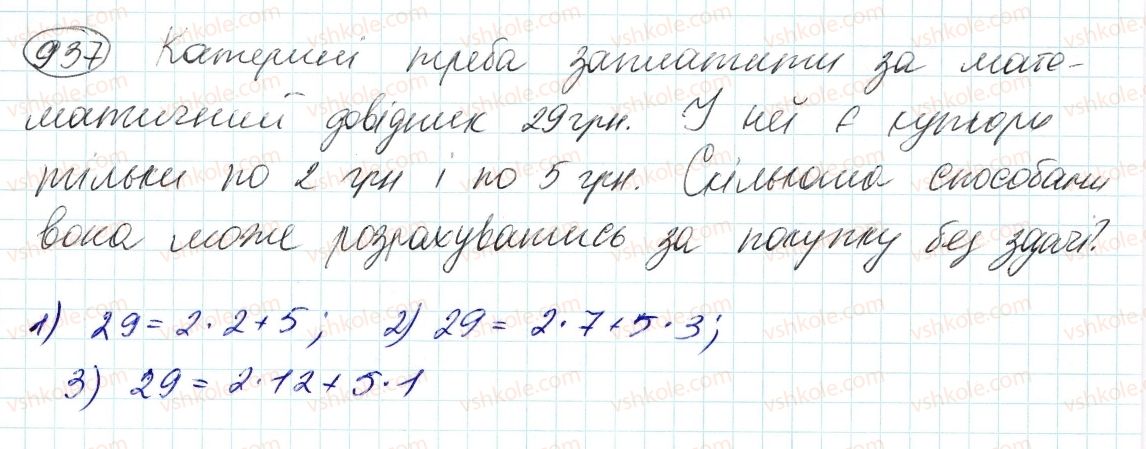 937 Катерині треба заплатити за мате-
матичний довідник 29 грн. У неї є купюри
тільки по 2 грн і по 5 грн. Скількома способами
вона може розрахуватись за покупку без здачі?
1) 29 = 2·2+5; 2) 29 = 2·7+5·3;
3) 29 = 2·12+5·1